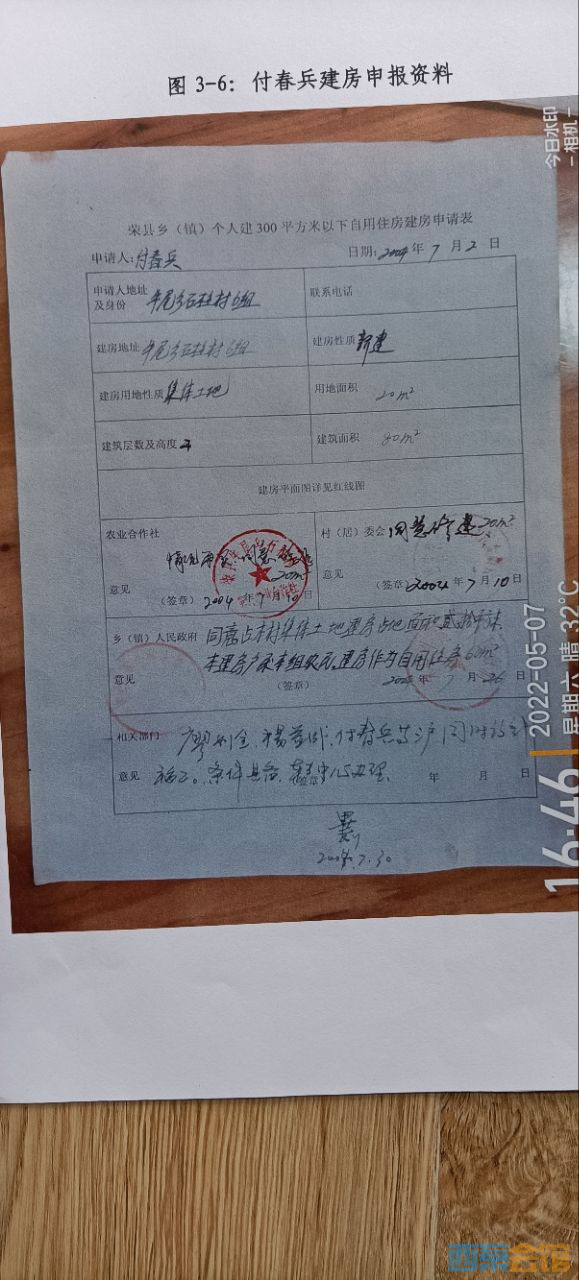 图 3-6：付春兵建房申报资料
荣县乡（镇）个人建300平方米以下自用住房建房申请表
申请人：付春兵 日期：2004年7月2日
申请人地址及身份 牟尾乡石柱村6组 联系电话
建房地址 牟尾乡石柱村6组 建房性质 新建
建房用地性质 集体土地 用地面积 20m²
建筑层数及高度 建筑面积 80m²
建房平面图详见红线图
农业合作社 村（居）委会 同意修建20m²
情况 同意 20m²
意见 意见
（签章）2004年7月10日 （签章）2004年7月10日
乡（镇）人民政府 同意占本村集体土地建房占地面积贰拾平米
本建房户系本组农民，建房作为自用住房
意见 （签章） 7月26
相关部门 付春兵
意见 条件具备 办理 年 月 日
2004.7.30
今日水印
-相机-
16:46
2022-05-07
星期六 晴 32℃
西秦会馆